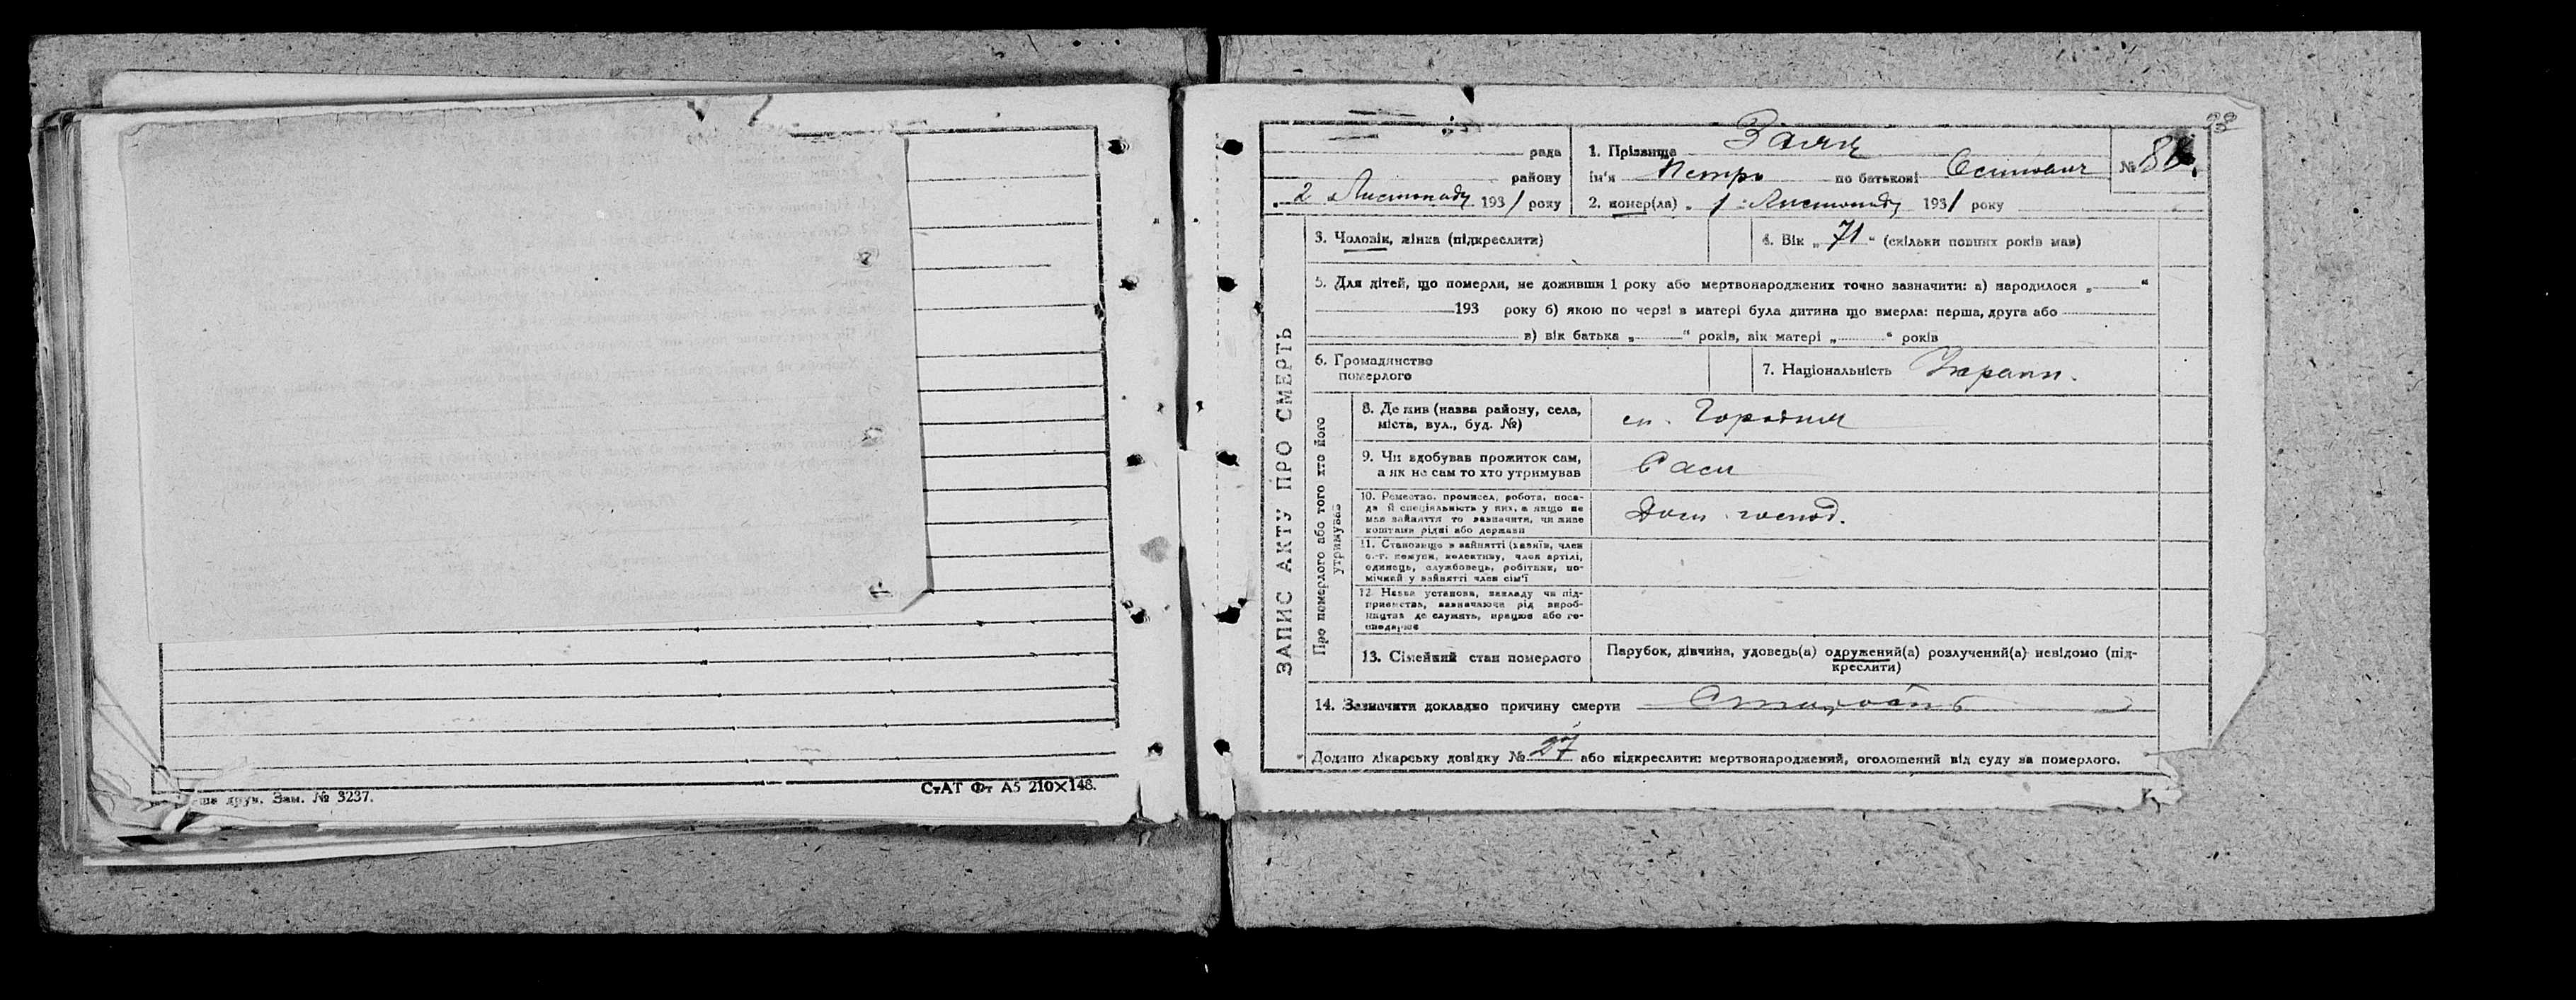 друк. Зам. № 3237.
СтАТ Фт А5 210×148.
ЗАПИС АКТУ ПРО СМЕРТЬ
рада
району
2 Листопада 1931 року
1. Прізвище Заяц
ім'я Петро по батькові
№
2. помер(ла) „ 1 " Листопада 1931 року
3. Чоловік, жінка (підкреслити)
4. Вік „ 71 " (скільки повних років мав)
5. Для дітей, що померли, не доживши 1 року або мертвонароджених точно зазначити: а) народилося „ "
193 року б) якою по черзі в матері була дитина що вмерла: перша, друга або
в) вік батька „ " років, вік матері „ " років
6. Громадянство
померлого
7. Національність Украин.
Про померлого або того хто його
утримував
8. Де жив (назва району, села,
міста, вул., буд. №)
9. Чи здобував прожиток сам,
а як не сам то хто утримував
Сам
10. Ремество, промисел, робота, поса-
да й спеціяльність у них, а якщо не
мав зайняття то зазначити, чи живе
коштами рідні або держави
Дом. господ.
11. Становище в зайнятті (хазяїн, член
с.-г. комуни, колективу, член артілі,
одинець, службовець, робітник, по-
мічний у зайнятті член сім'ї
12. Назва установи, закладу чи під-
приємства, зазначаючи рід вироб-
ництва де служить, працює або го-
сподарює
13. Сімейний стан померлого
Парубок, дівчина, удовець(а) одружений(а) розлучений(а) невідомо (під-
креслити)
14. Зазначити докладно причину смерти Старость
Додано лікарську довідку № 27 або підкреслити: мертвонароджений, оголошений від суду за померлого.